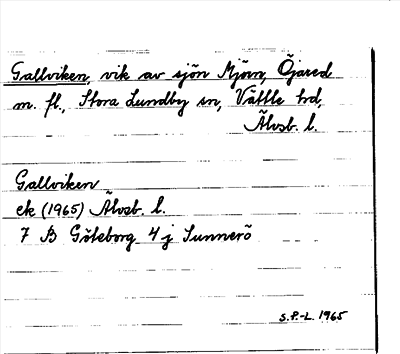 Gallviken, vik av sjön Mjörn, Öjared
m. fl., Stora Lundby sn, Vättle hd,
Älvsb. l.
Gallviken
ek (1965) Älvsb. l.
7 B Göteborg 4 j Sunnerö
S.P.-L. 1965